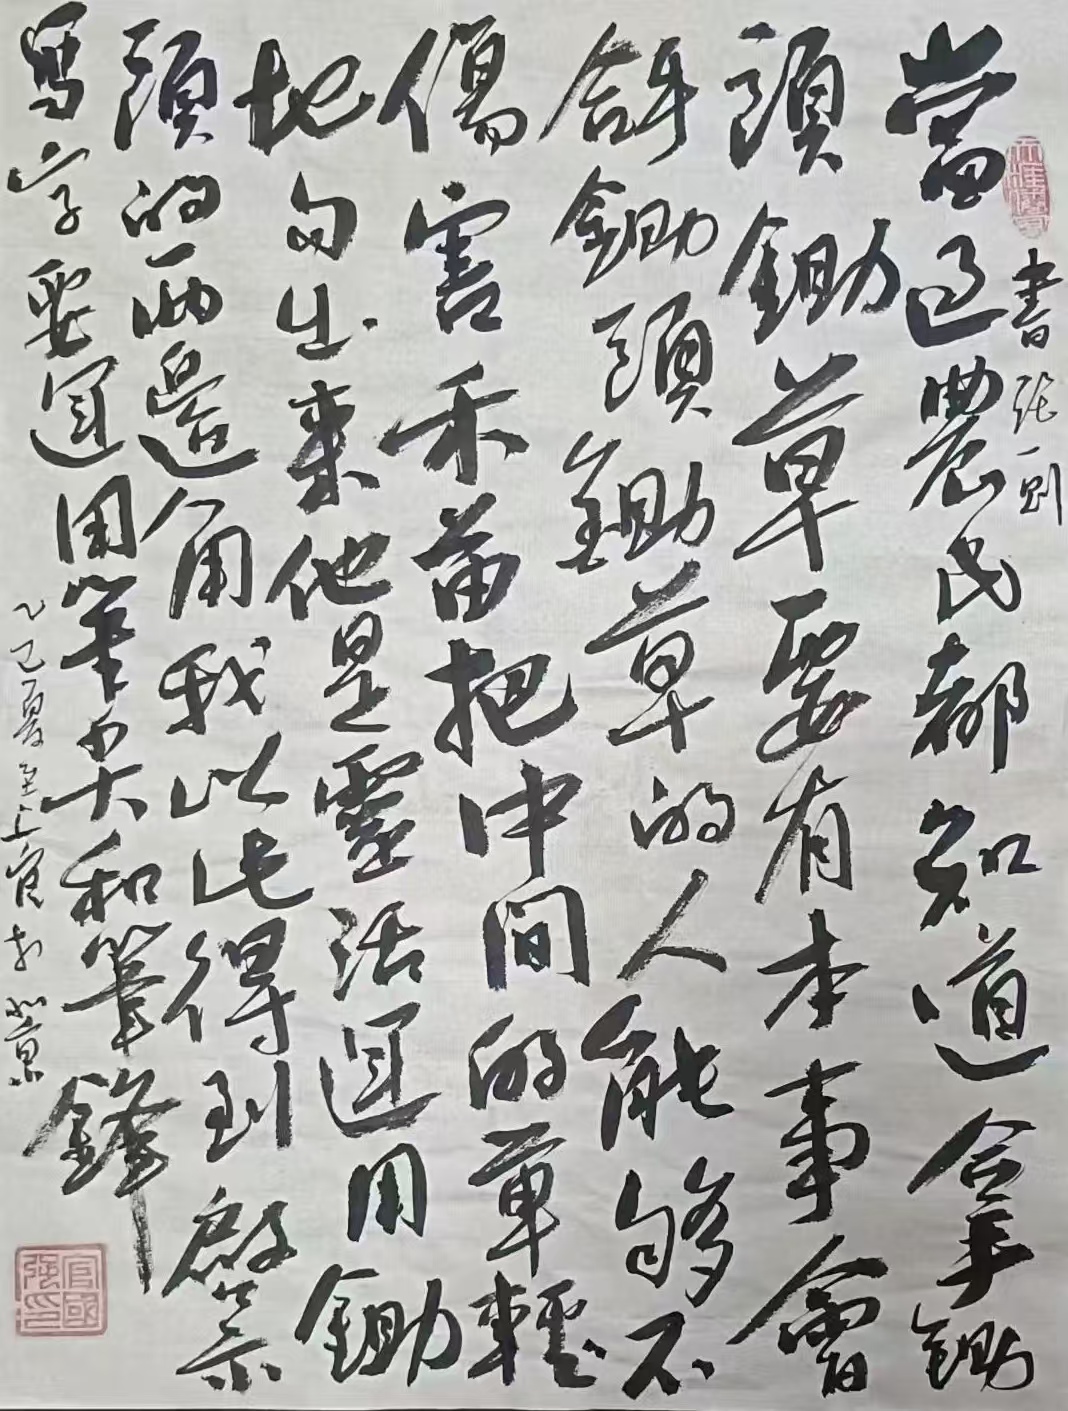 書一则
當過農民都知道拿鋤
頭鋤草要有本事會
拿鋤頭鋤草的人能夠不
傷害禾苗把中間的草輕
地勾出來他是靈活運用鋤
頭的兩邊角我以此得到啟示
寫字要運用筆尖和筆鋒
乙巳夏至上官於北京
官國強印